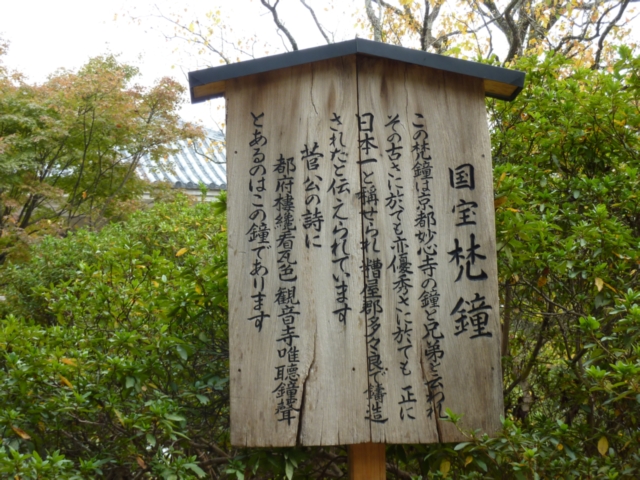 国宝梵鐘
この梵鐘は京都妙心寺の鐘と兄弟と云われ
その古さに於ても亦優秀さに於ても正に
日本一と称せられ糟屋郡多々良で鋳造
されたと伝えられています
菅公の詩に
都府楼纔看瓦色 観音寺唯聴鐘聲
とあるのはこの鐘であります